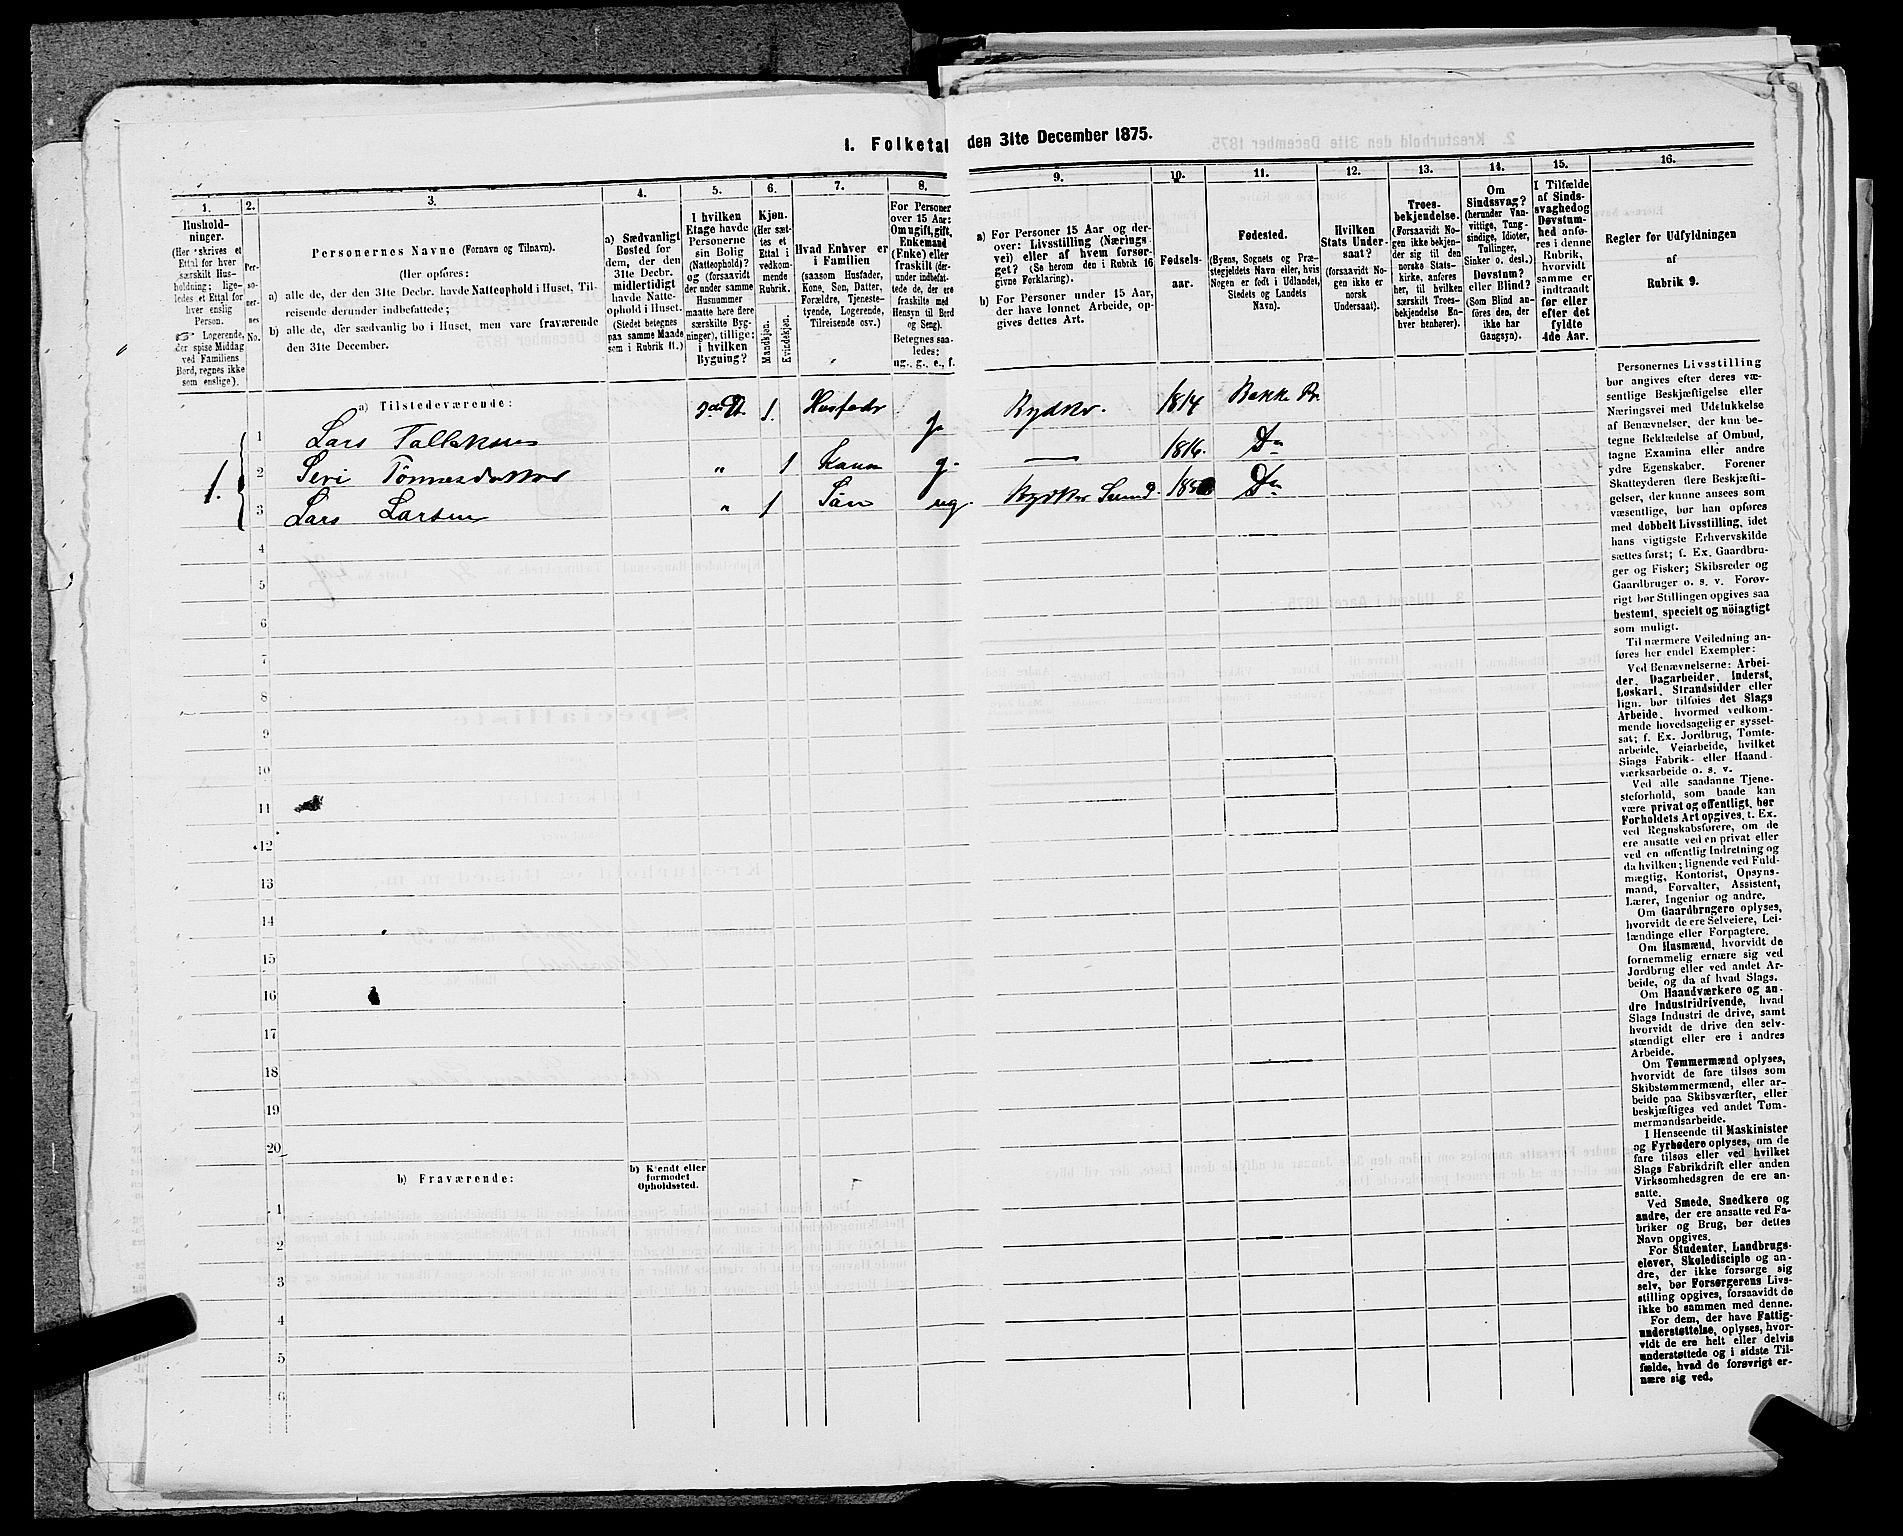 1. Folketal den 31te December 1875.
1. 2. 3. 4. 5. 6. 7. 8. 9. 10. 11. 12. 13. 14. 15. 16.
Hushold-
ninger.
(Her skrives et
Ettal for hver
særskilt Hus-
holdning; lige-
ledes et Ettal for
hver enslig
Person.
Logerende,
der spise Middag
ved Familiens
Bord, regnes ikke
som enslige).
Per-
so-
ner-
nes
No.
Personernes Navne (Fornavn og Tilnavn).
(Her opføres:
a) alle de, der den 31te Decbr. havde Natteophold i Huset, Til-
reisende derunder indbefattede;
b) alle de, der sædvanlig bo i Huset, men vare fraværende
den 31te December.
a) Sædvanligt
Bosted for
dem, der den
31te Decbr.
midlertidigt
havde Natte-
ophold i Huset.
(Stedet betegnes
paa samme Maade
som i Rubrik 11.)
I hvilken
Etage havde
Personerne
sin Bolig
(Natteophold)?
og (forsaavidt
der under samme
Husnummer
maatte høre flere
særskilte Byg-
ninger), tillige:
i hvilken
Bygning?
Kjøn.
(Her sæt-
tes et
Ettal i
vedkom-
mende
Rubrik.
Mandkjøn.
Kvindekjøn.
Hvad Enhver er
i Familien
(saasom Husfader,
Kone, Søn, Datter,
Forældre, Tjeneste-
tyende, Logerende,
Tilreisende osv.)
For Personer
over 15 Aar:
Om ugift, gift,
Enkemand
(Enke) eller
fraskilt (der-
under indbefat-
tede de, der ere
fraskilte med
Hensyn til Bord
og Seng).
Betegnes saa-
ledes:
ug., g., e., f.
a) For Personer 15 Aar og der-
over: Livsstilling (Nærings-
vei) eller af hvem forsør-
get? (Se herom den i Rubrik 16
givne Forklaring).
b) For Personer under 15 Aar,
der have lønnet Arbeide, op-
gives dettes Art.
Fødsels-
aar.
Fødested.
(Byens, Sognets og Præ-
stegjeldets Navn eller, hvis
Nogen er født i Udlandet,
Stedets og Landets
Navn).
Hvilken
Stats Under-
saat?
(forsaavidt No-
gen ikke er
norsk
Undersaat).
Troes-
bekjendelse.
(Forsaavidt No-
gen ikke bekjen-
der sig til den
norske Stats-
kirke, anføres
her, til hvilken
særskilt Troes-
bekjendelse En-
hver henhører).
Om
Sindssvag?
(herunder Van-
vittige, Tung-
sindige, Idioter,
Tullinger,
Sinker o. desl.)
Døvstum?
eller Blind?
(Som Blind an-
føres den, der
ikke har
Gangsyn).
I Tilfælde
af Sinds-
svaghed og
Døvstum-
hed anfø-
res i denne
Rubrik,
hvorvidt
samme er
indtraadt
før eller
efter det
fyldte
4de Aar.
Regler for Udfyldningen
af
Rubrik 9.
a) Tilstedeværende:
1 Lars 1 g. 1814
2 Siri Tönnesdatter „ 1 Kone g. — 1816. Do
3 Lars Larsen „ 1 Søn ug. Do
1.
4
5
6
7
8
9
10
11
12
13
14
15
16
17
18
19
20
b) Fraværende:
b) Kjendt eller
formodet
Opholdssted.
1
2
3
4
5
6
Personernes Livsstilling
bør angives efter deres væ-
sentlige Beskjæftigelse eller
Næringsvei med Udelukkelse
af Benævnelser, der kun be-
tegne Beklædelse af Ombud,
tagne Examina eller andre
ydre Egenskaber. Forener
Skatteyderen flere Beskjæfti-
gelser, der kunne ansees som
væsentlige, bør han opføres
med dobbelt Livsstilling, idet
hans vigtigste Erhvervskilde
sættes først; f. Ex. Gaardbru-
ger og Fisker; Skibsreder og
Gaardbruger o. s. v. Forøv-
rigt bør Stillingen opgives saa
bestemt, specielt og nøiagtigt
som muligt.
Til nærmere Veiledning an-
føres her endel Exempler:
Ved Benævnelserne: Arbei-
der, Dagarbeider, Inderst,
Løskarl, Strandsidder eller
lign. bør tilføies det Slags
Arbeide, hvormed vedkom-
mende hovedsagelig er syssel-
sat; f. Ex. Jordbrug, Tømte-
arbeide, Veiarbeide, hvilket
Slags Fabrik- eller Haand-
værksarbeide o. s. v.
Ved alle saadanne Tjene-
steforhold, som baade kan
være privat og offentligt, bør
Forholdets Art opgives, t. Ex.
ved Regnskabsførere, om de
ere ansatte ved en privat eller
ved en offentlig Indretning og
da hvilken; lignende ved Fuld-
mægtig, Kontorist, Opsyns-
mand, Forvalter, Assistent,
Lærer, Ingeniør og andre.
Om Gaardbrugere oplyses,
hvorvidt de ere Selveiere, Lei-
lændinge eller Forpagtere.
Om Husmænd, hvorvidt de
fornemmelig ernære sig ved
Jordbrug eller ved andet Ar-
beide, og da af hvad Slags.
Om Haandværkere og an-
dre Industridrivende, hvad
Slags Industri de drive, samt
hvorvidt de drive den selv-
stændigt eller ere i andres
Arbeide.
Om Tømmermænd oplyses,
hvorvidt de fare tilsøs som
Skibstømmermænd, eller ar-
beide paa Skibsværfter, eller
beskjæftiges ved andet Tøm-
mermandsarbeide.
I Henseende til Maskinister
og Fyrbødere oplyses, om de
fare tilsøs eller ved hvilket
Slags Fabrikdrift eller anden
Virksomhedsgren de ere an-
satte.
Ved Smede, Snedkere og
andre, der ere ansatte ved Fa-
briker og Brug, bør dettes
Navn opgives.
For Studenter, Landbrugs-
elever, Skoledisciple og an-
dre, der ikke forsørge sig
selv, bør Forsørgerens Livs-
stilling opgives, forsaavidt de
ikke bo sammen med denne.
For dem, der have Fattig-
understøttelse, oplyses, hvor-
vidt de ere helt eller delvis
understøttede og i sidste Til-
fælde, hvad de forøvrigt er-
nære sig ved.